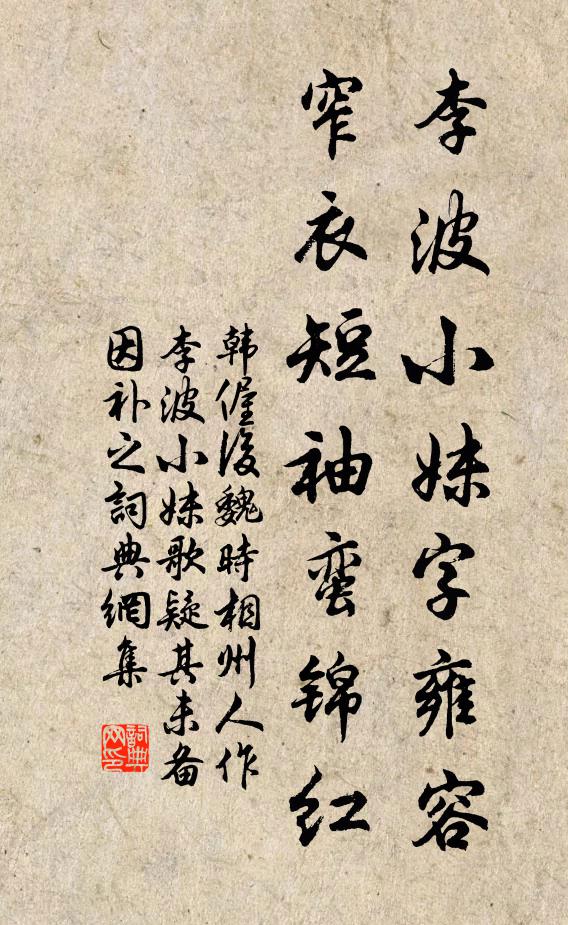 李波小妹字雍容
窄衣短袖蛮锦红
韩偓後魏時相州人作
李波小妹歌疑其未备
因补之詞典網集
詞典网印